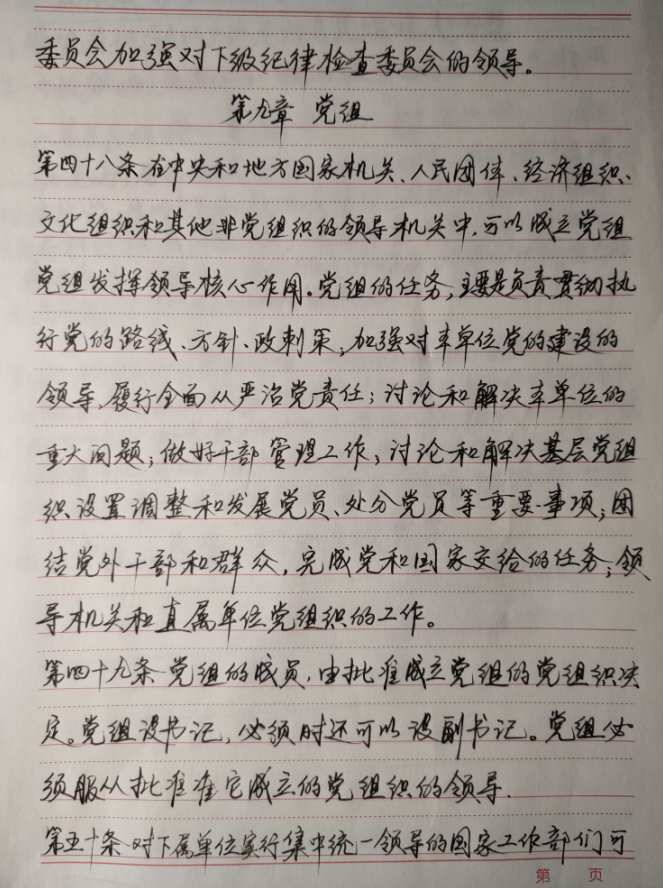 委员会加强对下级纪律检查委员会的领导。
第九章 党组
第四十八条在中央和地方国家机关、人民团体、经济组织、
文化组织和其他非党组织的领导机关中,可以成立党组
党组发挥领导核心作用。党组的任务,主要是负责贯彻执
行党的路线、方针、政刺策,加强对本单位党的建设的
领导,履行全面从严治党责任;讨论和解决本单位的
重大问题;做好干部管理工作,讨论和解决基层党组
织设置调整和发展党员、处分党员等重要事项;团
结党外干部和群众,完成党和国家交给的任务;领
导机关和直属单位党组织的工作。
第四十九条党组的成员,由批准成立党组的党组织决
定。党组设书记,必须时还可以设副书记。党组必
须服从批准准它成立的党组织的领导.
第五十条对下属单位实行集中统一领导的国家工作部们可
第 页